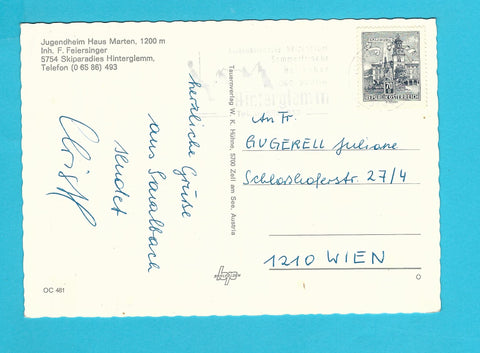 Jugendheim Haus Marten, 1200 m
Inh. F. Feiersinger
5754 Skiparadies Hinterglemm,
Telefon (0 65 86) 493
herzliche Grüße
aus Saalbach
sendet
Tauernverlag W. K. Hühne, 5700 Zell am See, Austria
Hinterglemm
REPUBLIK ÖSTERREICH
An Fr.
GUGERELL Juliane
Schlosshoferstr. 27/4
1210 WIEN
OC 481